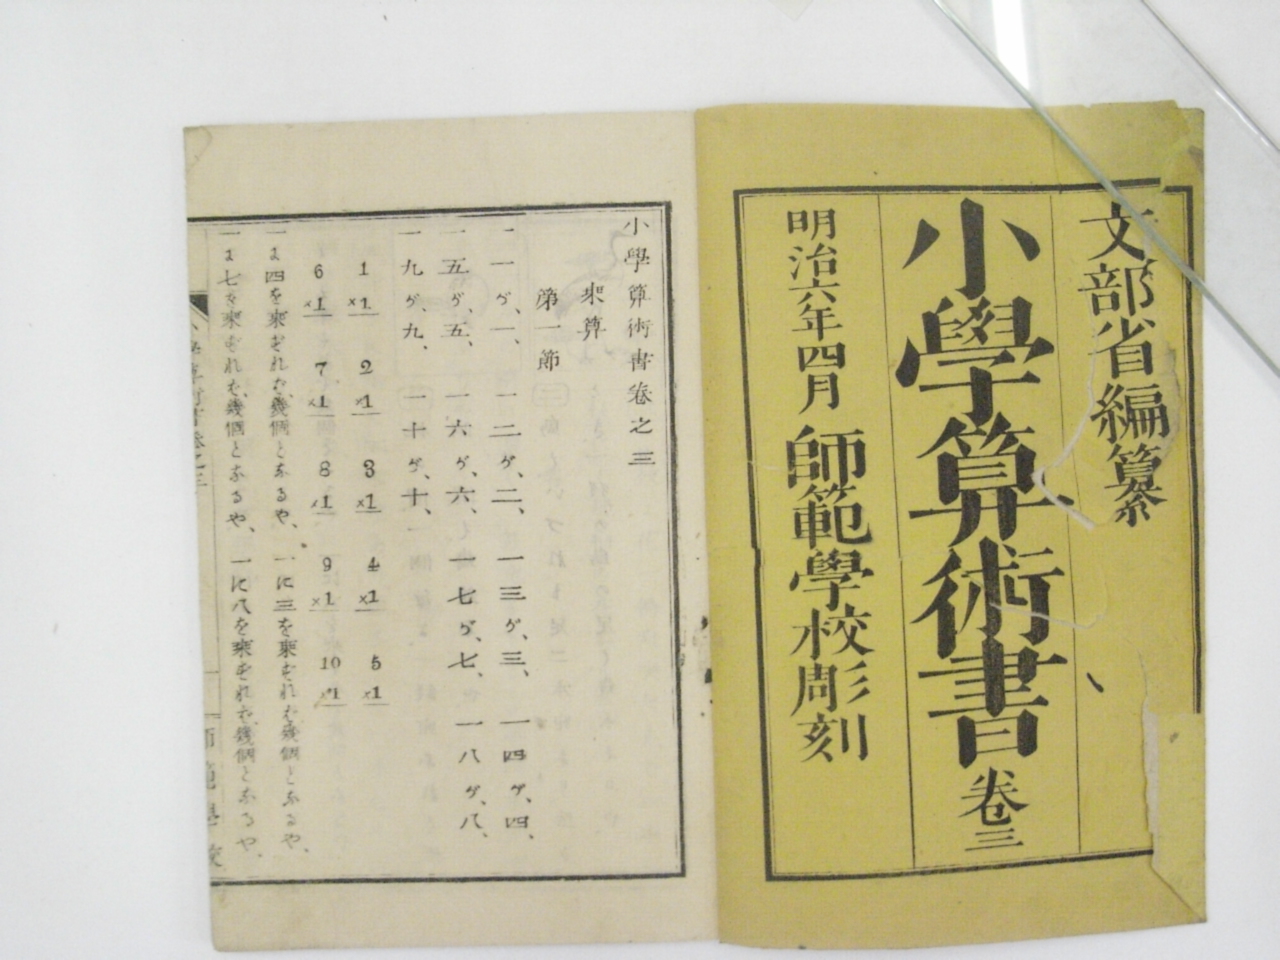 文部省編纂
小學算術書卷三
明治六年四月 師範學校彫刻
小學算術書卷之三
乘算
第一節
一一ゲ、一、一二ゲ、二、一三ゲ、三、一四ゲ、四、
一五ゲ、五、一六ゲ、六、一七ゲ、七、一八ゲ、八、
一九ゲ、九、一十ゲ、十、
1 ×1 2 ×1 3 ×1 4 ×1 5 ×1
6 ×1 7 ×1 8 ×1 9 ×1 10 ×1
一に四を乘ずれバ、幾個となるや、一に三を乘ずれバ、幾個となるや、
一に七を乘ずれバ、幾個となるや、一に八を乘ずれバ、幾個となるや、
師範學校